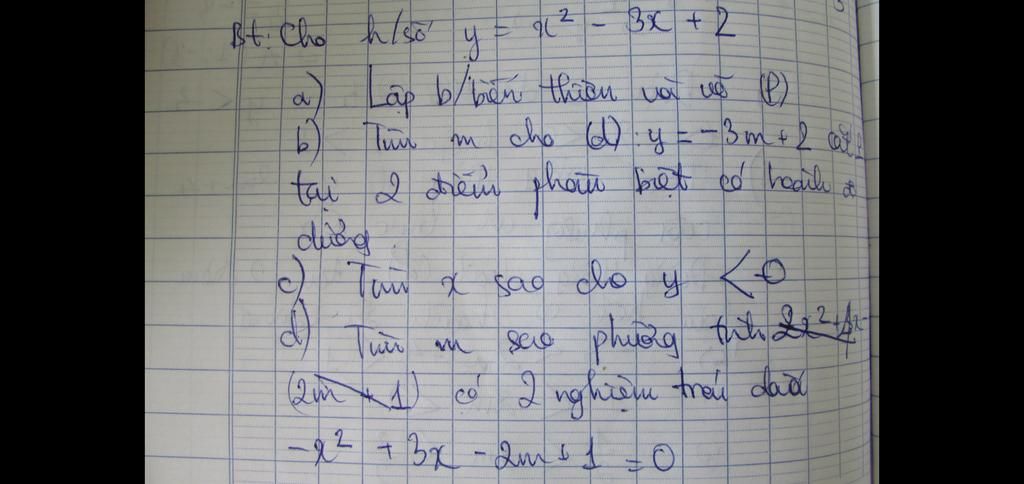 Bt: Cho h/số y = x² - 3x + 2
a) Lập b/biến thiên và vẽ (P)
b) Tìm m cho (d): y = -3m + 2 cắt
tại 2 điểm phân biệt có hoành đ
dương.
c) Tìm x sao cho y < 0
d) Tìm m sao phương trình
có 2 nghiệm trái dấu
-x² + 3x - 2m + 1 = 0